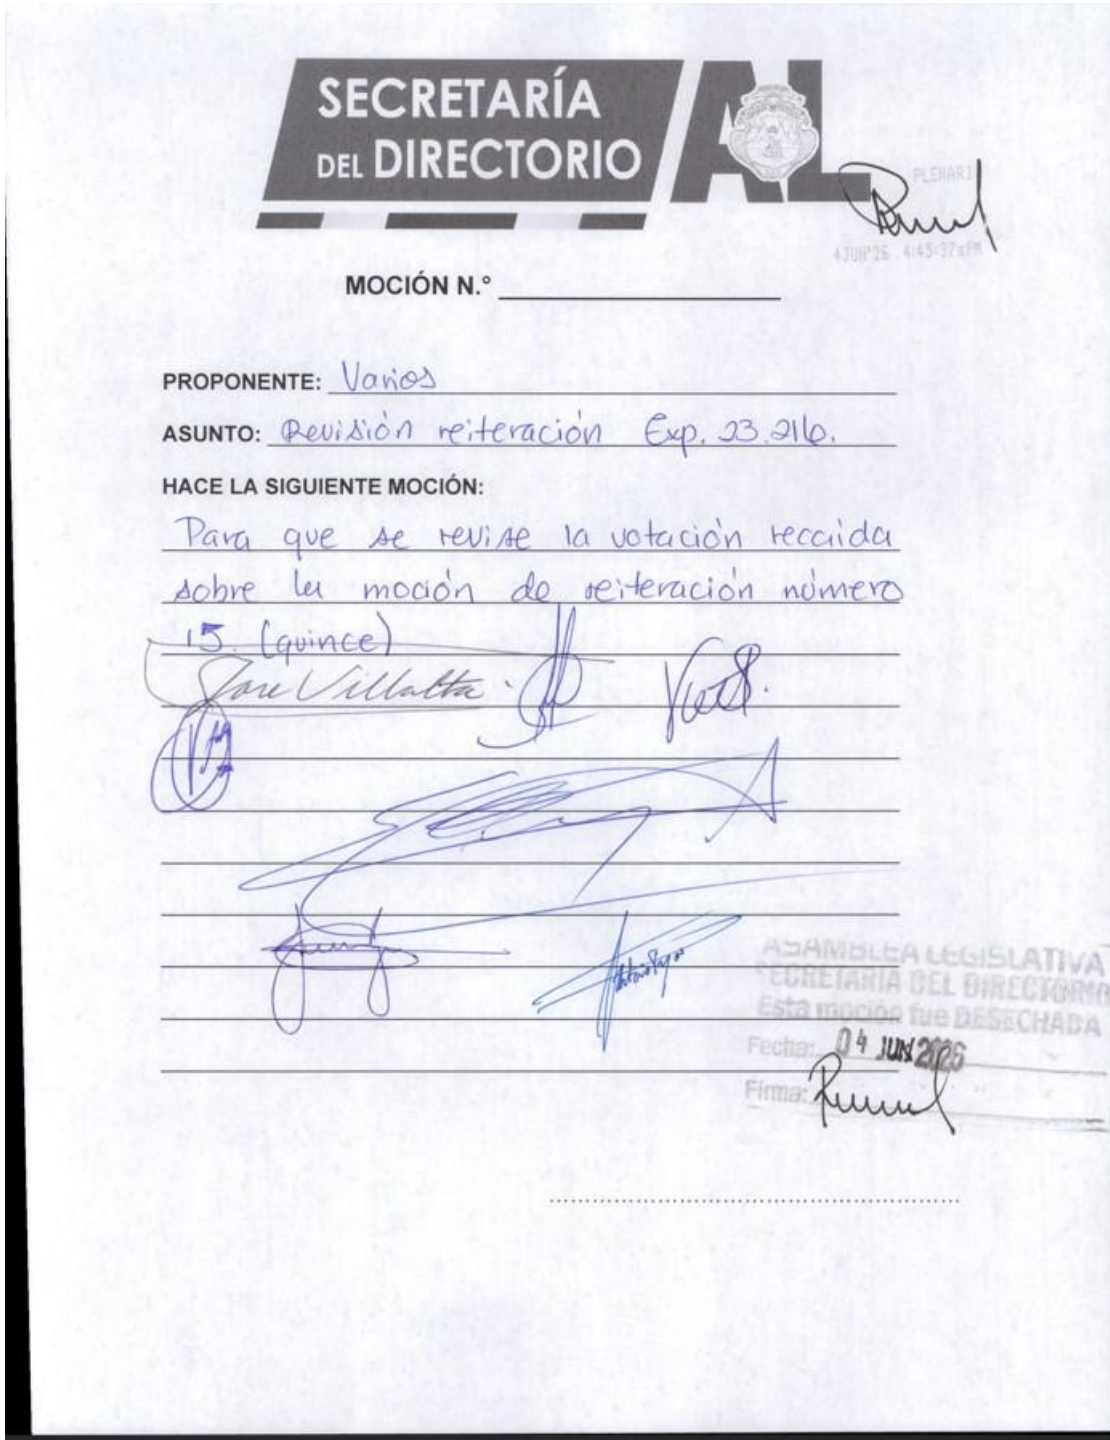 SECRETARÍA
DEL DIRECTORIO
AL
PLENARI
4JUN'26 4:45:37 PM
MOCIÓN N.°
PROPONENTE: Varios
ASUNTO: Revisión reiteración Exp. 23.216.
HACE LA SIGUIENTE MOCIÓN:
Para que se revise la votación recaida
sobre la moción de reiteración número
15. (quince)
José Villalta
ASAMBLEA LEGISLATIVA
SECRETARIA DEL DIRECTORIO
Esta moción fue DESECHADA
Fecha: 04 JUN 2026
Firma: